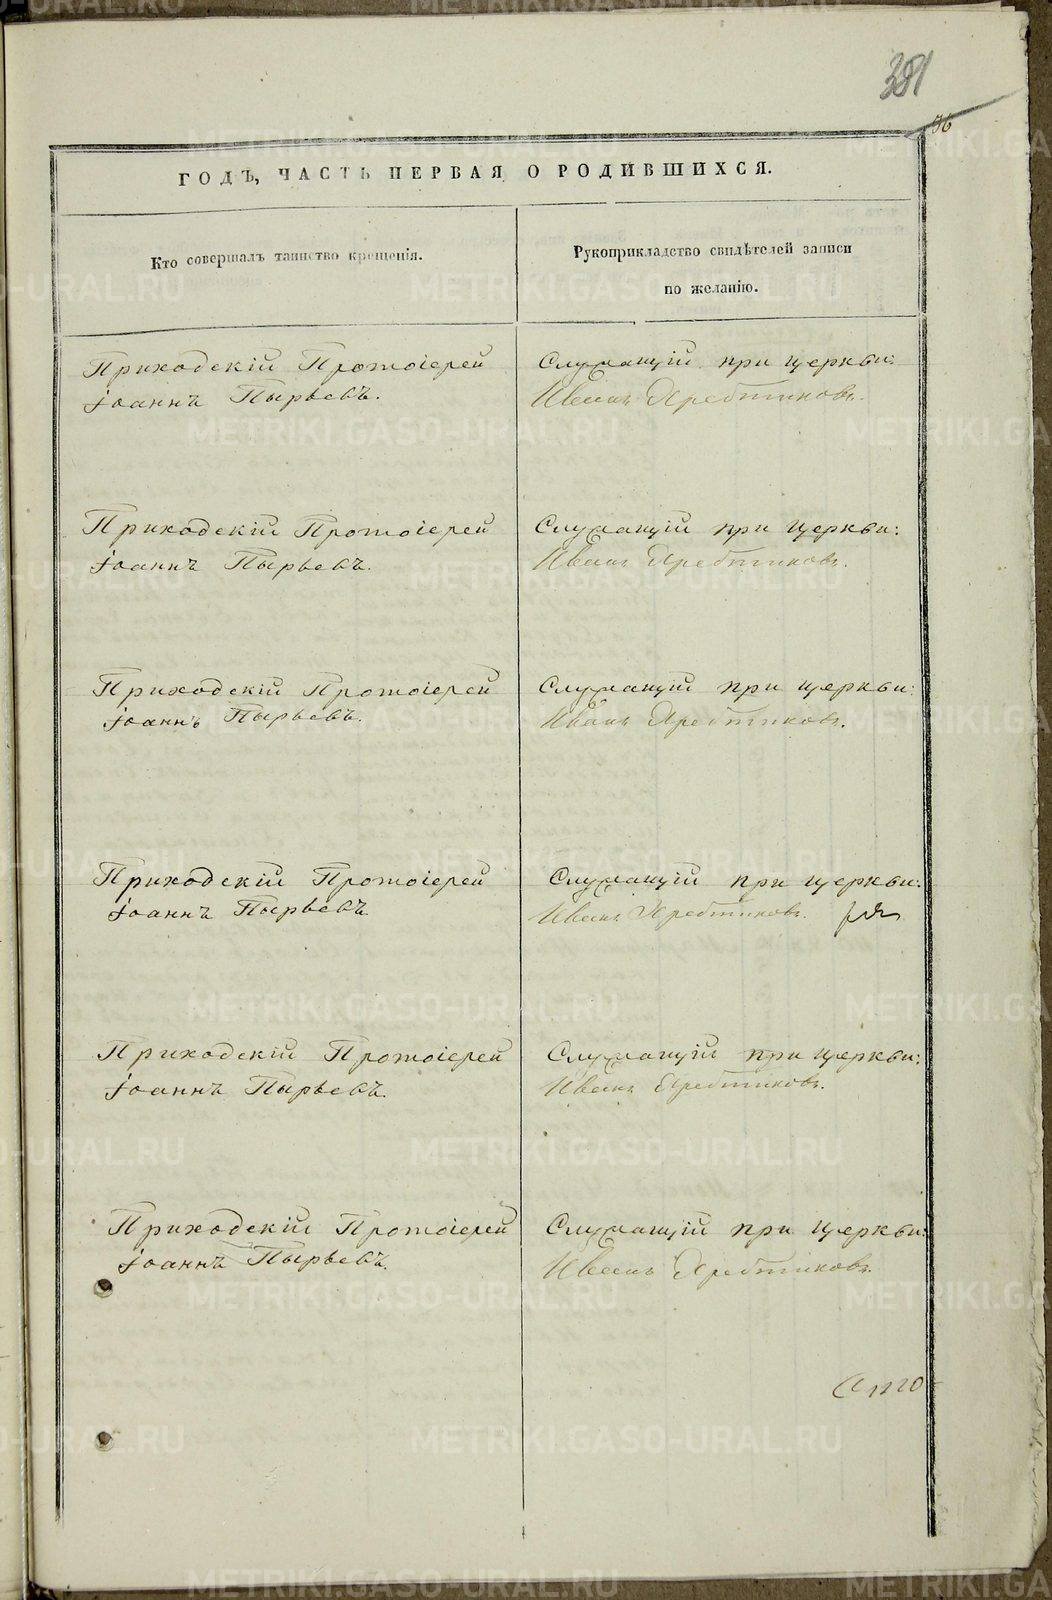 381
96
ГОДЪ, ЧАСТЬ ПЕРВАЯ О РОДИВШИХСЯ.
Кто совершалъ таинство крещенія.
Рукоприкладство свидѣтелей записи
по желанію.
Приходскій Протоіерей
Іоаннъ Пырьевъ.
Служащій при церкви:
Иванъ
Приходскій Протоіерей
Іоаннъ Пырьевъ.
Служащій при церкви:
Иванъ
Приходскій Протоіерей
Іоаннъ Пырьевъ.
Служащій при церкви:
Иванъ
Приходскій Протоіерей
Іоаннъ Пырьевъ
Служащій при церкви:
Иванъ
Приходскій Протоіерей
Іоаннъ Пырьевъ.
Служащій при церкви:
Иванъ
Приходскій Протоіерей
Іоаннъ Пырьевъ.
Служащій при церкви:
Иванъ
METRIKI.GASO-URAL.RU